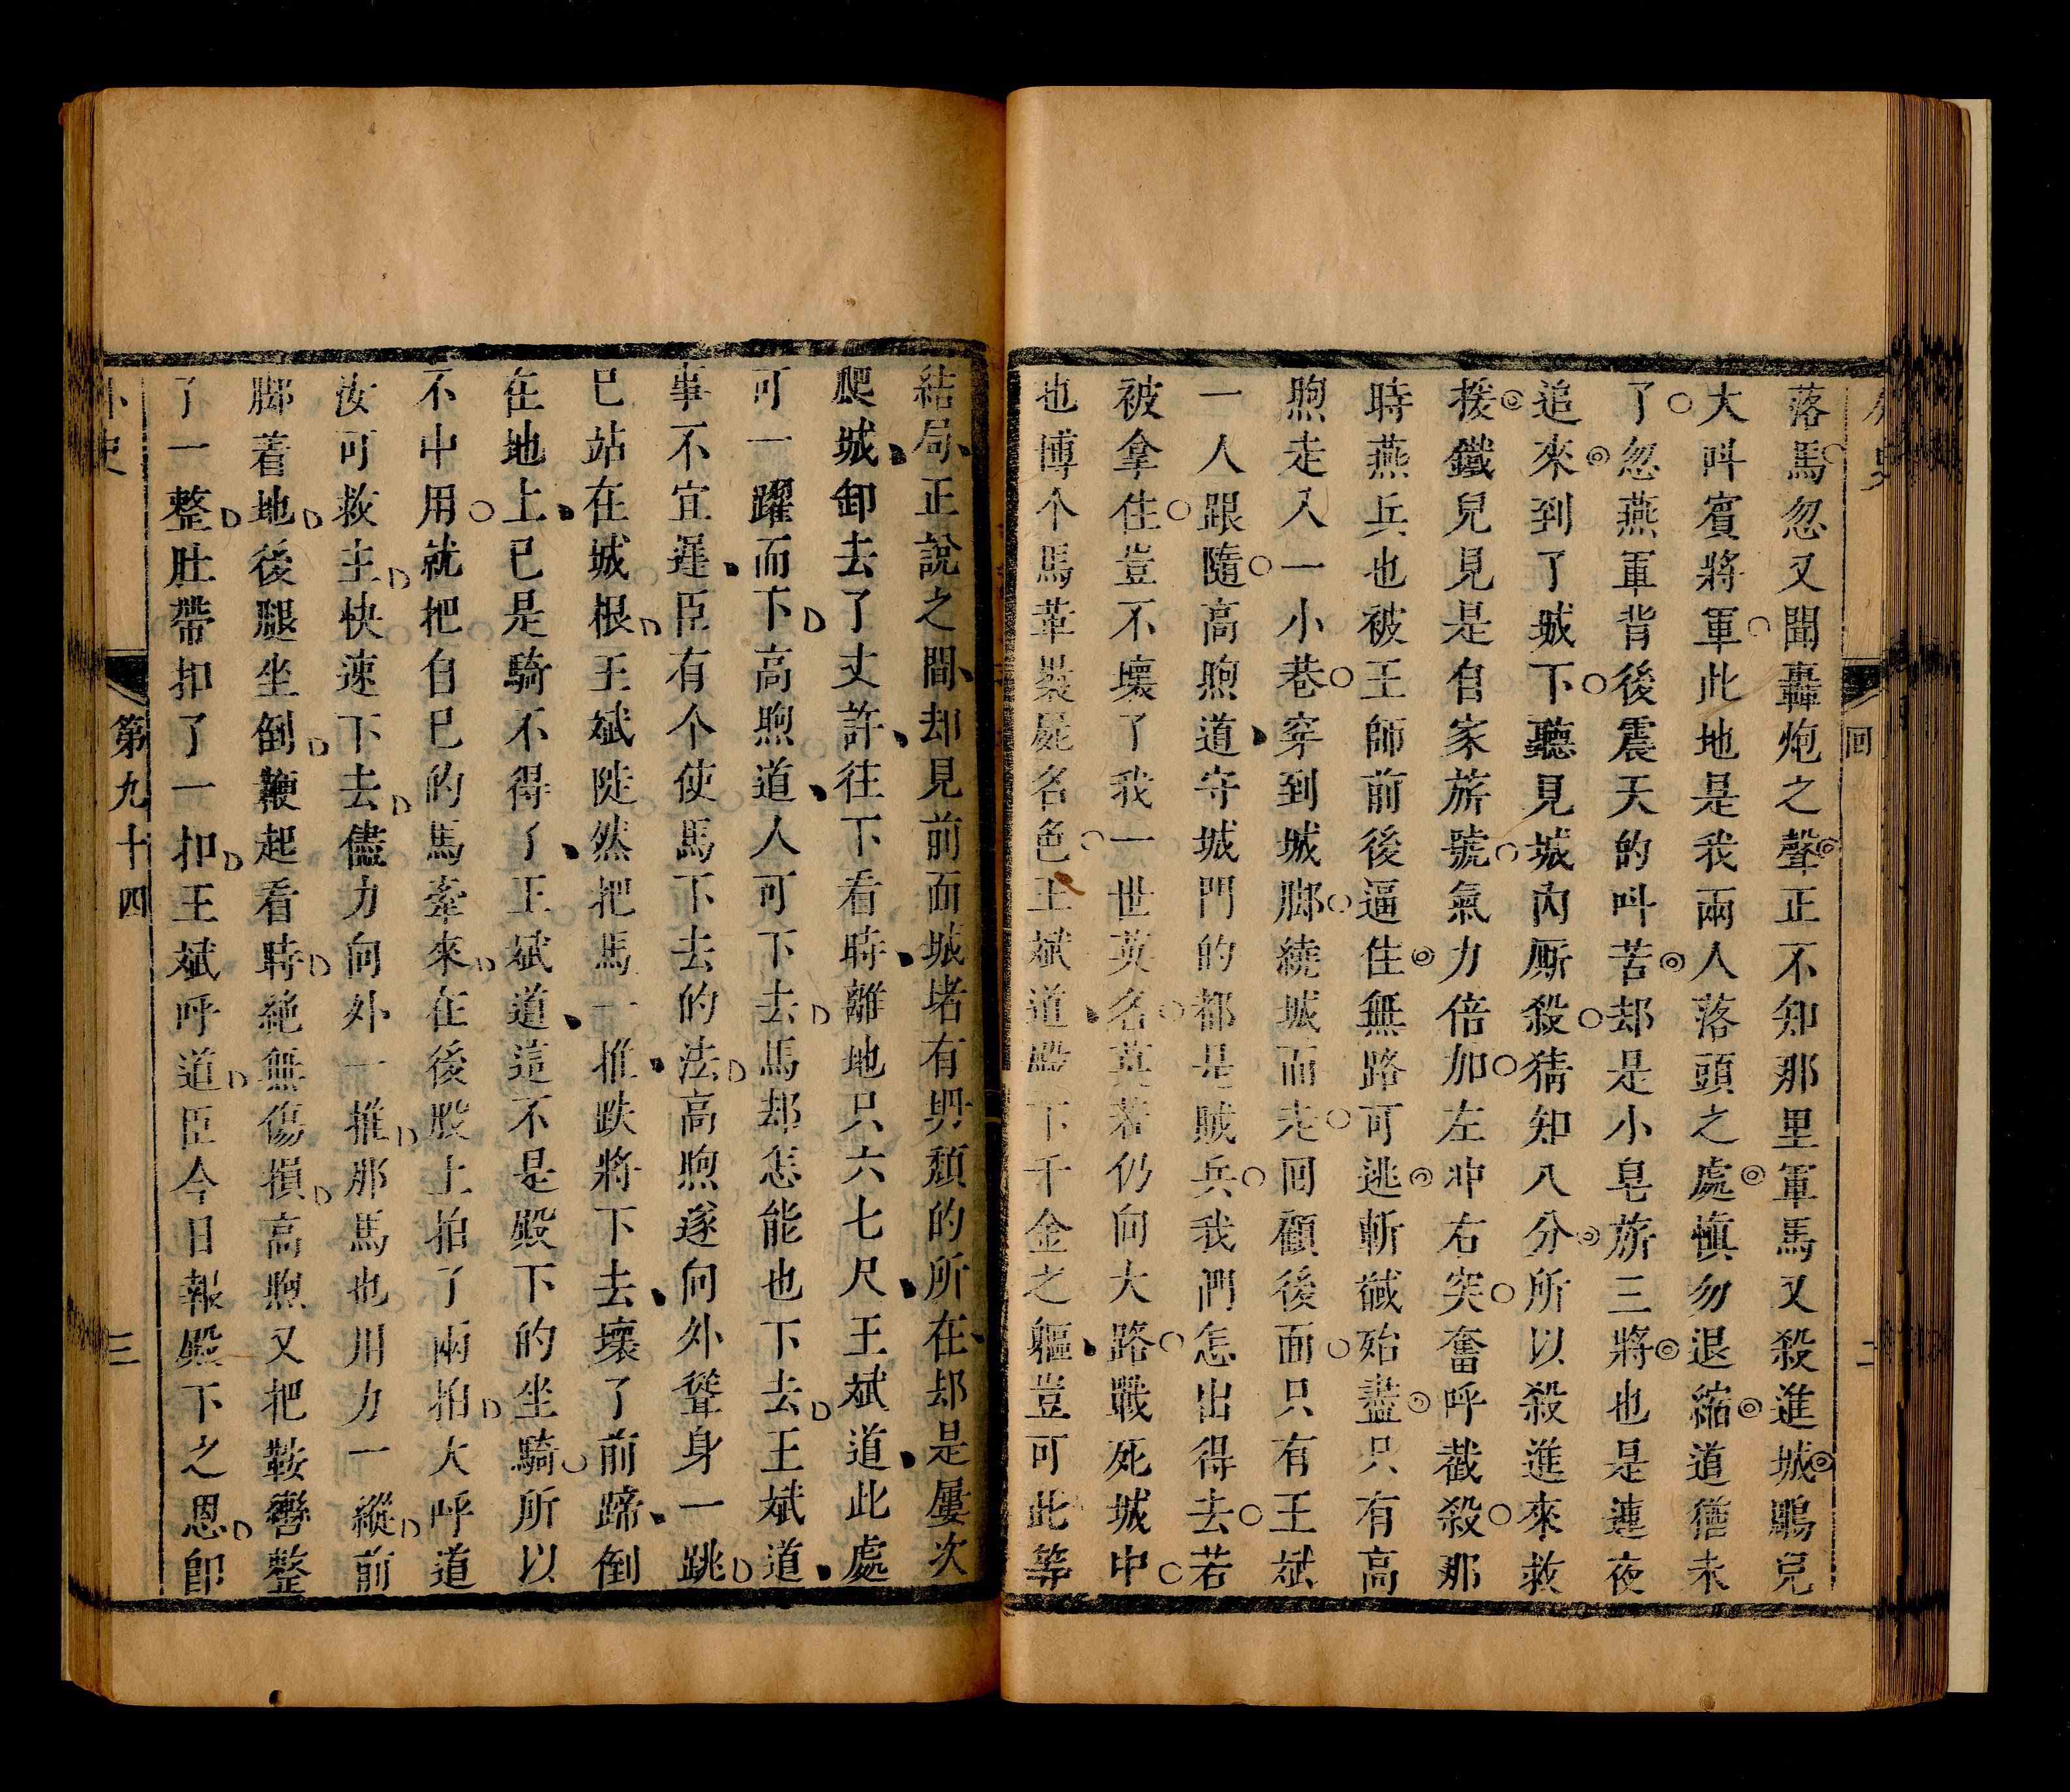 回
二
落馬忽又聞轟炮之聲正不知那里軍馬又殺進城鵰兒
大呌賓將軍此地是我兩人落頭之處慎勿退縮道猶未
了忽燕軍背後震天的呌苦却是小皂旂三將也是連夜
追來到了城下聽見城内厮殺猜知八分所以殺進來救
援鐵兒見是自家旂號氣力倍加左冲右突奮呼截殺那
時燕兵也被王師前後逼住無路可逃斬馘殆盡只有高
煦走入一小巷穿到城脚繞城而走回顧後面只有王斌
一人跟隨高煦道守城門的都是賊兵我們怎出得去若
被拿住豈不壞了我一世英名莫若仍向大路戰死城中
也博个馬革裹屍名色王斌道殿下千金之軀豈可此等
結局正說之間却見前面城堵有坍頽的所在却是屢次
爬城卸去了丈許往下看時離地只六七尺王斌道此處
可一躍而下高煦道人可下去馬却怎能也下去王斌道
事不宜遲臣有个使馬下去的法高煦遂向外聳身一跳
已站在城根王斌陡然把馬一推跌將下去壞了前蹄倒
在地上已是騎不得了王斌道這不是殿下的坐騎所以
不中用就把自已的馬牽來在後股上拍了兩拍大呼道
汝可救主快速下去儘力向外一推那馬也用力一縱前
脚着地後腿坐倒鞭起看時絶無傷損高煦又把鞍轡整
了一整肚帶扣了一扣王斌呼道臣今日報殿下之恩卽
外史
第九十四
三